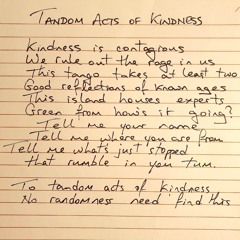 TANDOM ACTS OF KINDNESS
Kindness is contagious
We rule out the rage in us
This tango takes at least two
Good reflections of known ages
This island houses experts
Green from how's it going?
Tell me your name
Tell me where you are from
Tell me what's just stopped
that rumble in you tum.
To tandom acts of kindness
No randomness need find this